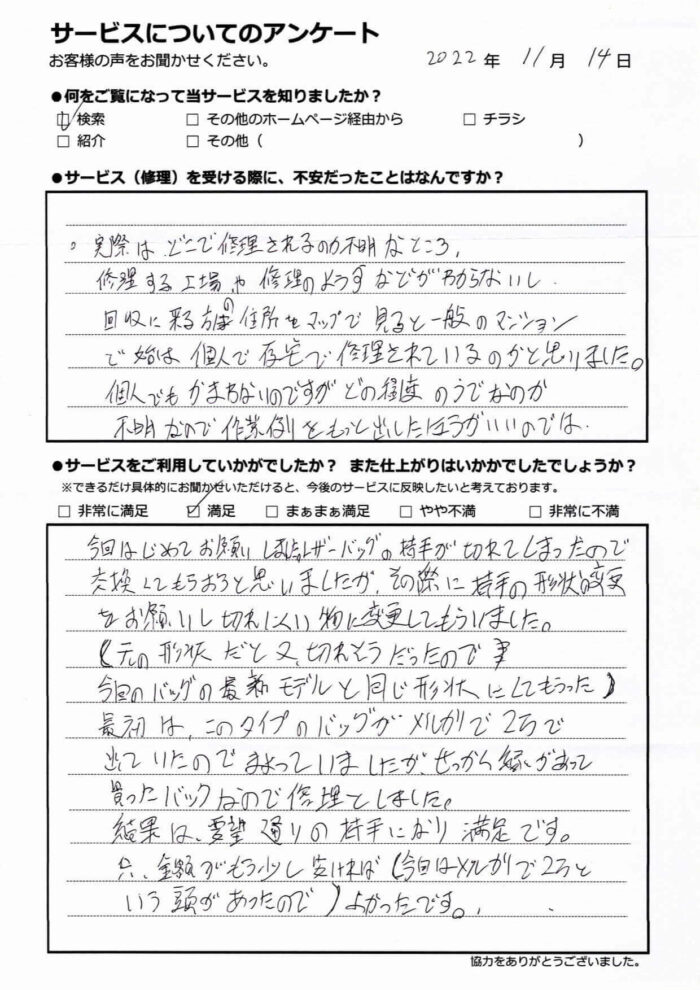 サービスについてのアンケート
お客様の声をお聞かせください。
2022年 11月 14日
●何をご覧になって当サービスを知りましたか？
☑ 検索 □ その他のホームページ経由から □ チラシ
□ 紹介 □ その他（ ）
●サービス（修理）を受ける際に、不安だったことはなんですか？
。実際は、どこで修理されるのか不明なところ。
修理する工場や修理のようすなどがわからないし
回収に来る方の住所をマップで見ると一般のマンション
で始は個人で在宅で修理されているのかと思いました。
個人でもかまわないのですがどの程度のうでなのか
不明なので作業例をもっと出したほうがいいのでは
●サービスをご利用していかがでしたか？ また仕上がりはいかかでしたでしょうか？
※できるだけ具体的にお聞かせいただけると、今後のサービスに反映したいと考えております。
□ 非常に満足 ☑ 満足 □ まぁまぁ満足 □ やや不満 □ 非常に不満
今回はじめてお願いしましたレザーバッグの持手が切れてしまったので
交換してもらおうと思いましたが、その際に持手の形状変更
をお願いし切れにくい物に変更してもらいました。
（元の形状だと又、切れそうだったので
今回のバッグの最新モデルと同じ形状にしてもらった）
最初は、このタイプのバッグがメルカリで2万で
出ていたのでまよっていましたが、せっかく縁があって
買ったバックなので修理としました。
結果は、要望通りの持手になり満足です。
只、金額がもう少し安ければ（今回はメルカリで2万と
いう頭があったので）よかったです。
協力をありがとうございました。